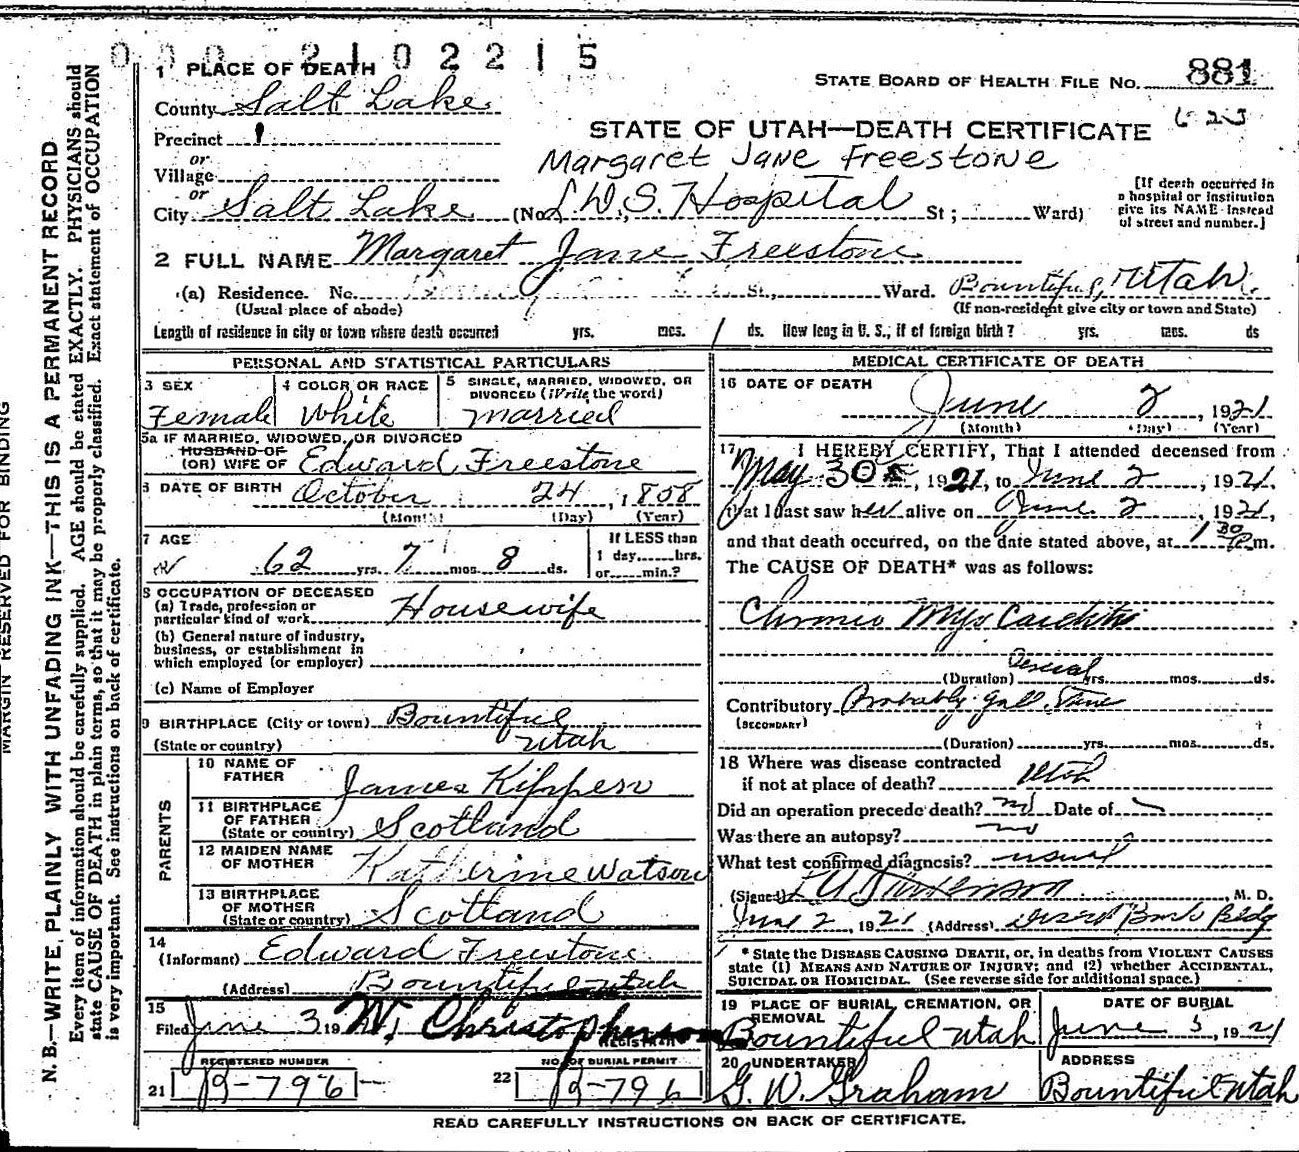 0002102215
1 PLACE OF DEATH
STATE BOARD OF HEALTH FILE NO. 881
County Salt Lake
623
Precinct
STATE OF UTAH—DEATH CERTIFICATE
or
Margaret Jane Freestone
Village
or
City Salt Lake (No. L.D.S. Hospital St; Ward)
[If death occurred in
a hospital or institution
give its NAME instead
of street and number.]
2 FULL NAME Margaret Jane Freestone
(a) Residence. No. St., Ward. Bountiful, Utah.
(Usual place of abode) (If non-resident give city or town and State)
Length of residence in city or town where death occurred yrs. mos. 1 ds. How long in U. S., if of foreign birth? yrs. mos. ds
PERSONAL AND STATISTICAL PARTICULARS
3 SEX
Female
4 COLOR OR RACE
White
5 SINGLE, MARRIED, WIDOWED, OR
DIVORCED (Write the word)
married
5a IF MARRIED, WIDOWED, OR DIVORCED
HUSBAND OF
(OR) WIFE OF Edward Freestone
6 DATE OF BIRTH October 24, 1858
(Month) (Day) (Year)
7 AGE
62 yrs. 7 mos. 8 ds.
If LESS than
1 day hrs.
or min.?
8 OCCUPATION OF DECEASED
(a) Trade, profession or
particular kind of work Housewife
(b) General nature of industry,
business, or establishment in
which employed (or employer)
(c) Name of Employer
9 BIRTHPLACE (City or town) Bountiful
(State or country) Utah
PARENTS
10 NAME OF
FATHER James Kippen
11 BIRTHPLACE
OF FATHER
(State or country) Scotland
12 MAIDEN NAME
OF MOTHER Katherine Watson
13 BIRTHPLACE
OF MOTHER
(State or country) Scotland
14
(Informant) Edward Freestone
(Address) Bountiful Utah
15
Filed June 3 19 W. Christopherson
REGISTRAR
REGISTERED NUMBER
21 B-796
NO. OF BURIAL PERMIT
22 B-796
MEDICAL CERTIFICATE OF DEATH
16 DATE OF DEATH
June 2, 1921
(Month) (Day) (Year)
17 I HEREBY CERTIFY, That I attended deceased from
May 30, 1921, to June 2, 1921,
that I last saw her alive on June 2, 1921,
and that death occurred, on the date stated above, at 1 30 P.m.
The CAUSE OF DEATH* was as follows:
Chronic Myo Carditis
(Duration) Several yrs. mos. ds.
Contributory Probably gall stone
(SECONDARY)
(Duration) yrs. mos. ds.
18 Where was disease contracted
if not at place of death? Utah
Did an operation precede death? no Date of
Was there an autopsy? no
What test confirmed diagnosis? usual
(Signed) M. D.
June 2, 1921 (Address) Deseret Bank Bldg
* State the DISEASE CAUSING DEATH, or, in deaths from VIOLENT CAUSES
state (1) MEANS AND NATURE OF INJURY; and (2) whether ACCIDENTAL,
SUICIDAL OR HOMICIDAL. (See reverse side for additional space.)
19 PLACE OF BURIAL, CREMATION, OR
REMOVAL
Bountiful Utah
DATE OF BURIAL
June 5, 1921
20 UNDERTAKER
G. W. Graham
ADDRESS
Bountiful Utah
READ CAREFULLY INSTRUCTIONS ON BACK OF CERTIFICATE.
MARGIN RESERVED FOR BINDING
N. B.—WRITE PLAINLY WITH UNFADING INK—THIS IS A PERMANENT RECORD
Every item of information should be carefully supplied. AGE should be stated EXACTLY. PHYSICIANS should
state CAUSE OF DEATH in plain terms, so that it may be properly classified. Exact statement of OCCUPATION
is very important. See instructions on back of certificate.